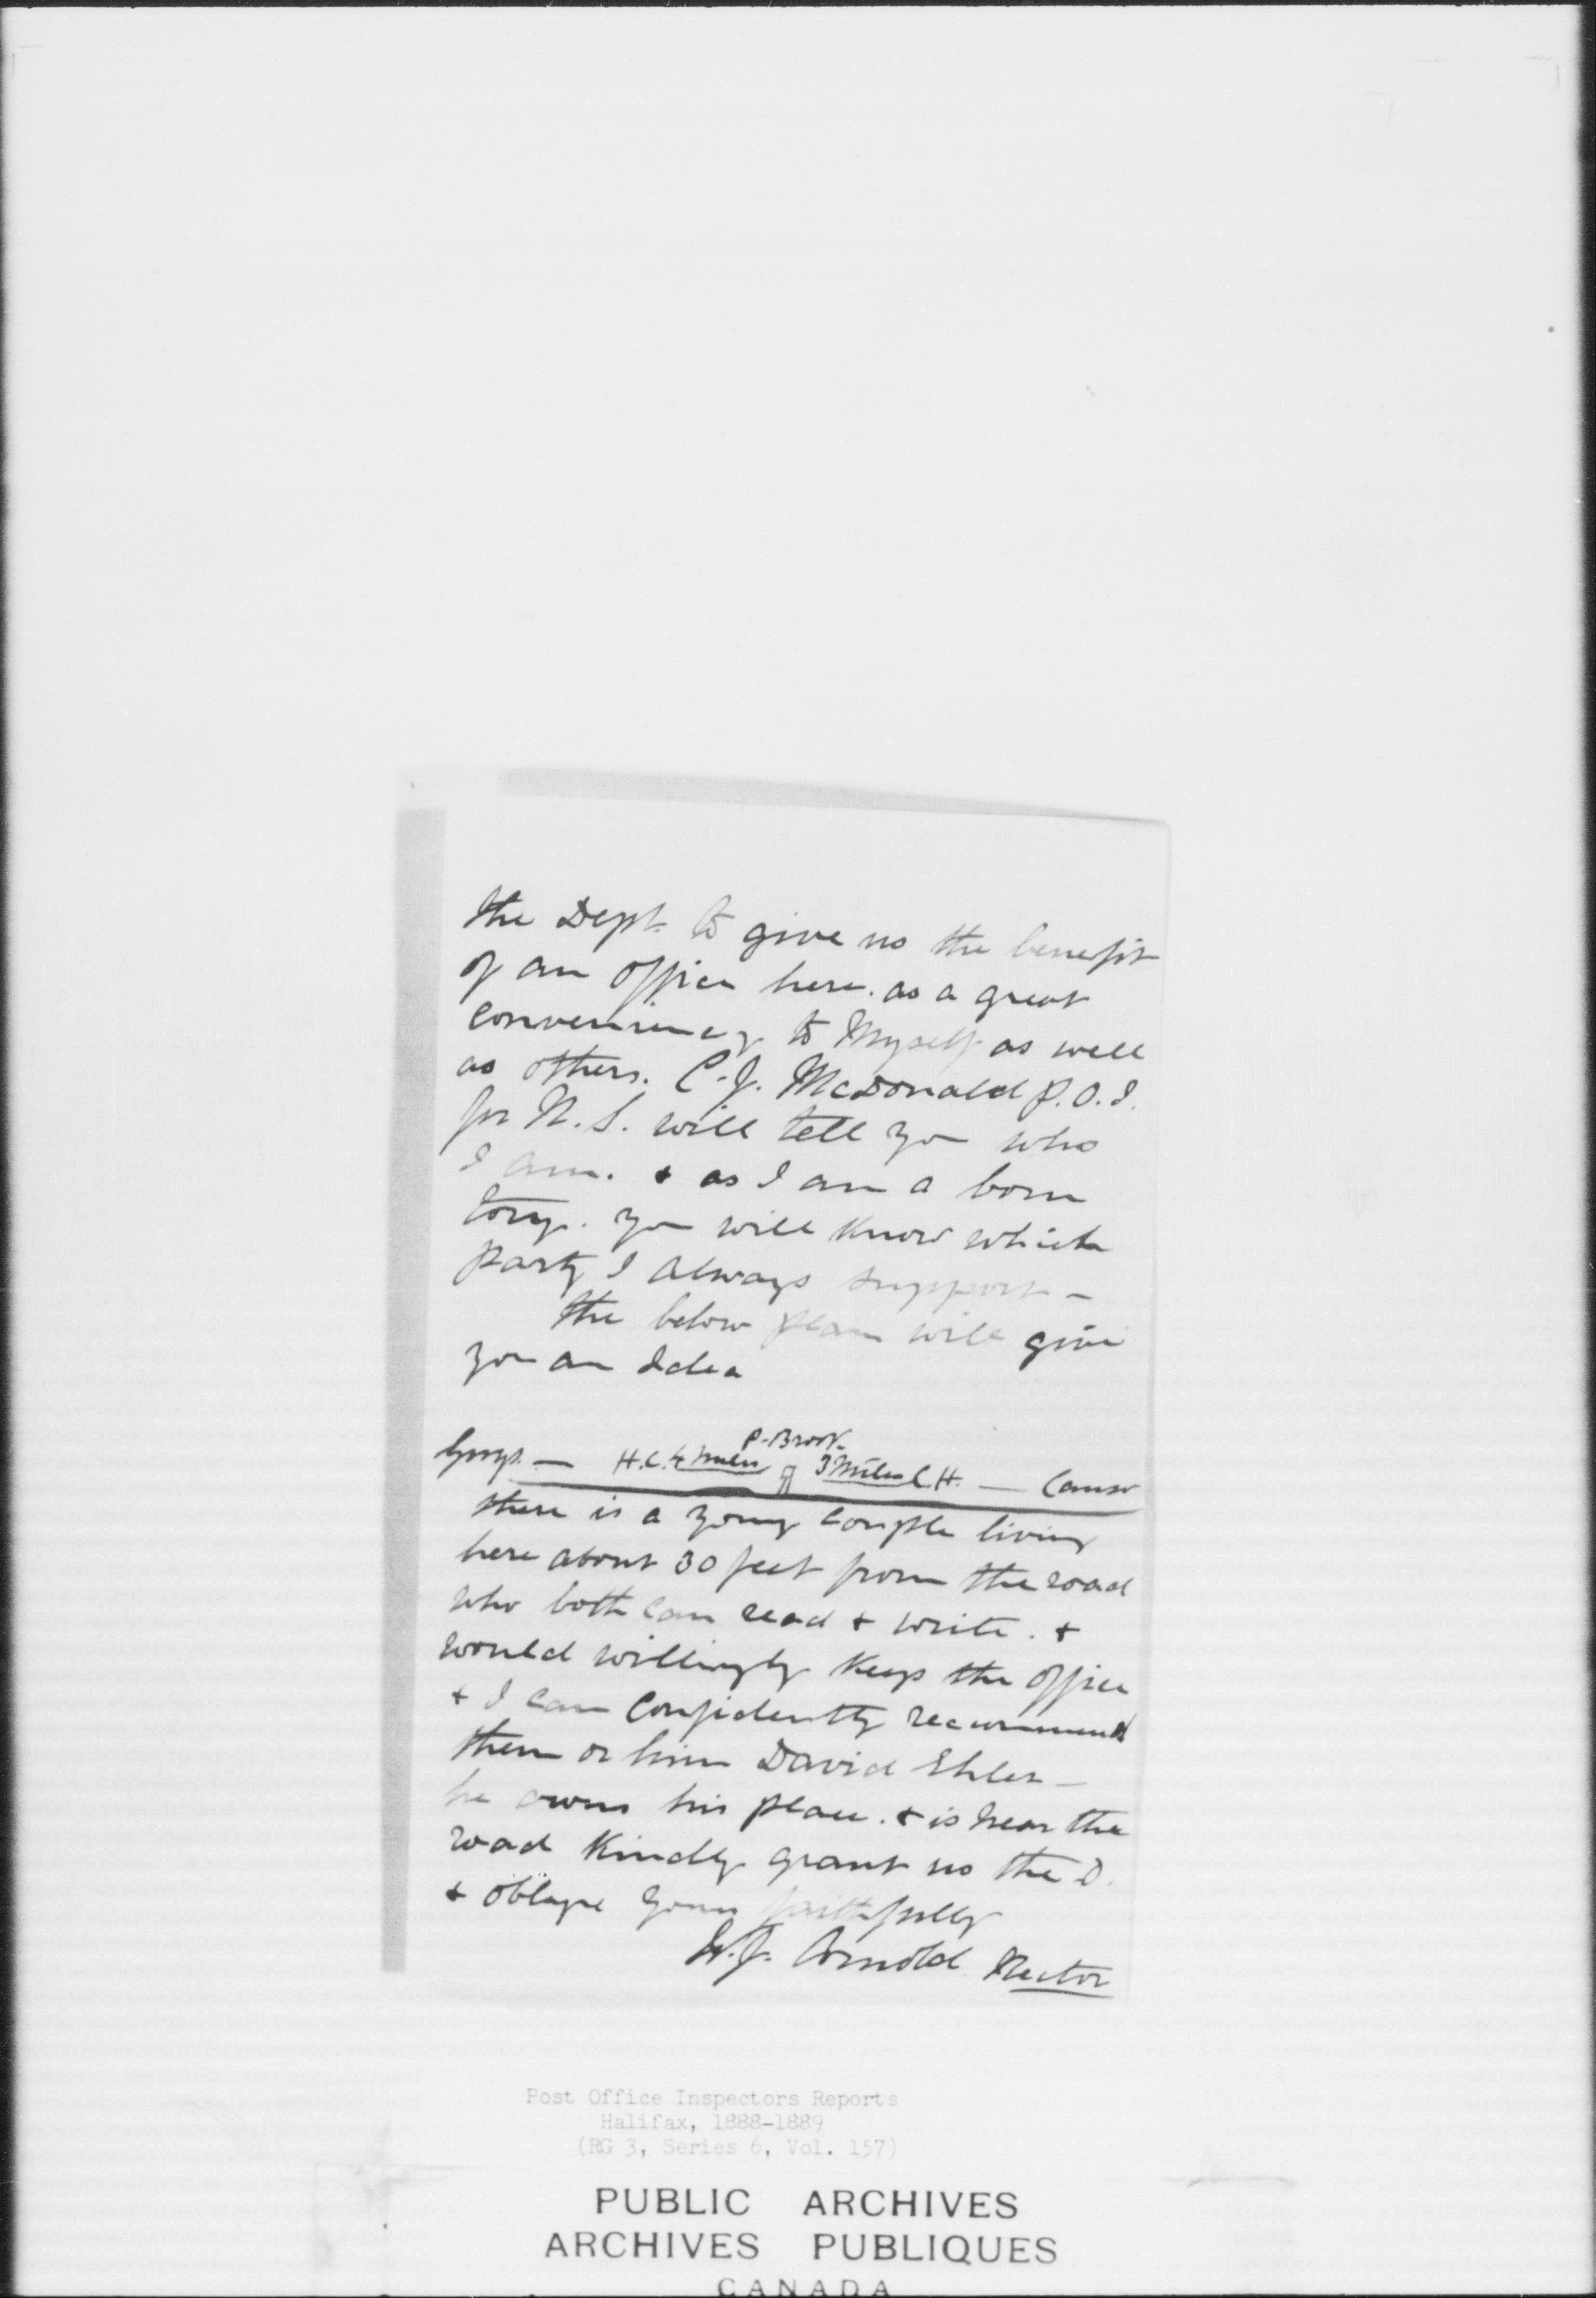 the Dept. to give us the benefit
of an office here. as a great
conveniency to Myself as well
as others. C. J. McDonald P.O.I.
for N.S. will tell you who
I am. + as I am a born
tory. you will know which
party I always support -
the below plan will give
you an Idea
P. Brook
Guys. — H.C. 4 miles 3 Miles C.H. — Canso
there is a young couple living
here about 30 feet from the road
who both can read + write. +
would willingly keep the office
+ I can confidently recommend
them or him David Ehler -
he owns his place. + is near the
road Kindly grant us the O.
+ oblige yours faithfully
W. J. Arnold Rector
Post Office Inspectors Reports
Halifax, 1888-1889
(RG 3, Series 6, Vol. 157)
PUBLIC ARCHIVES
ARCHIVES PUBLIQUES
CANADA